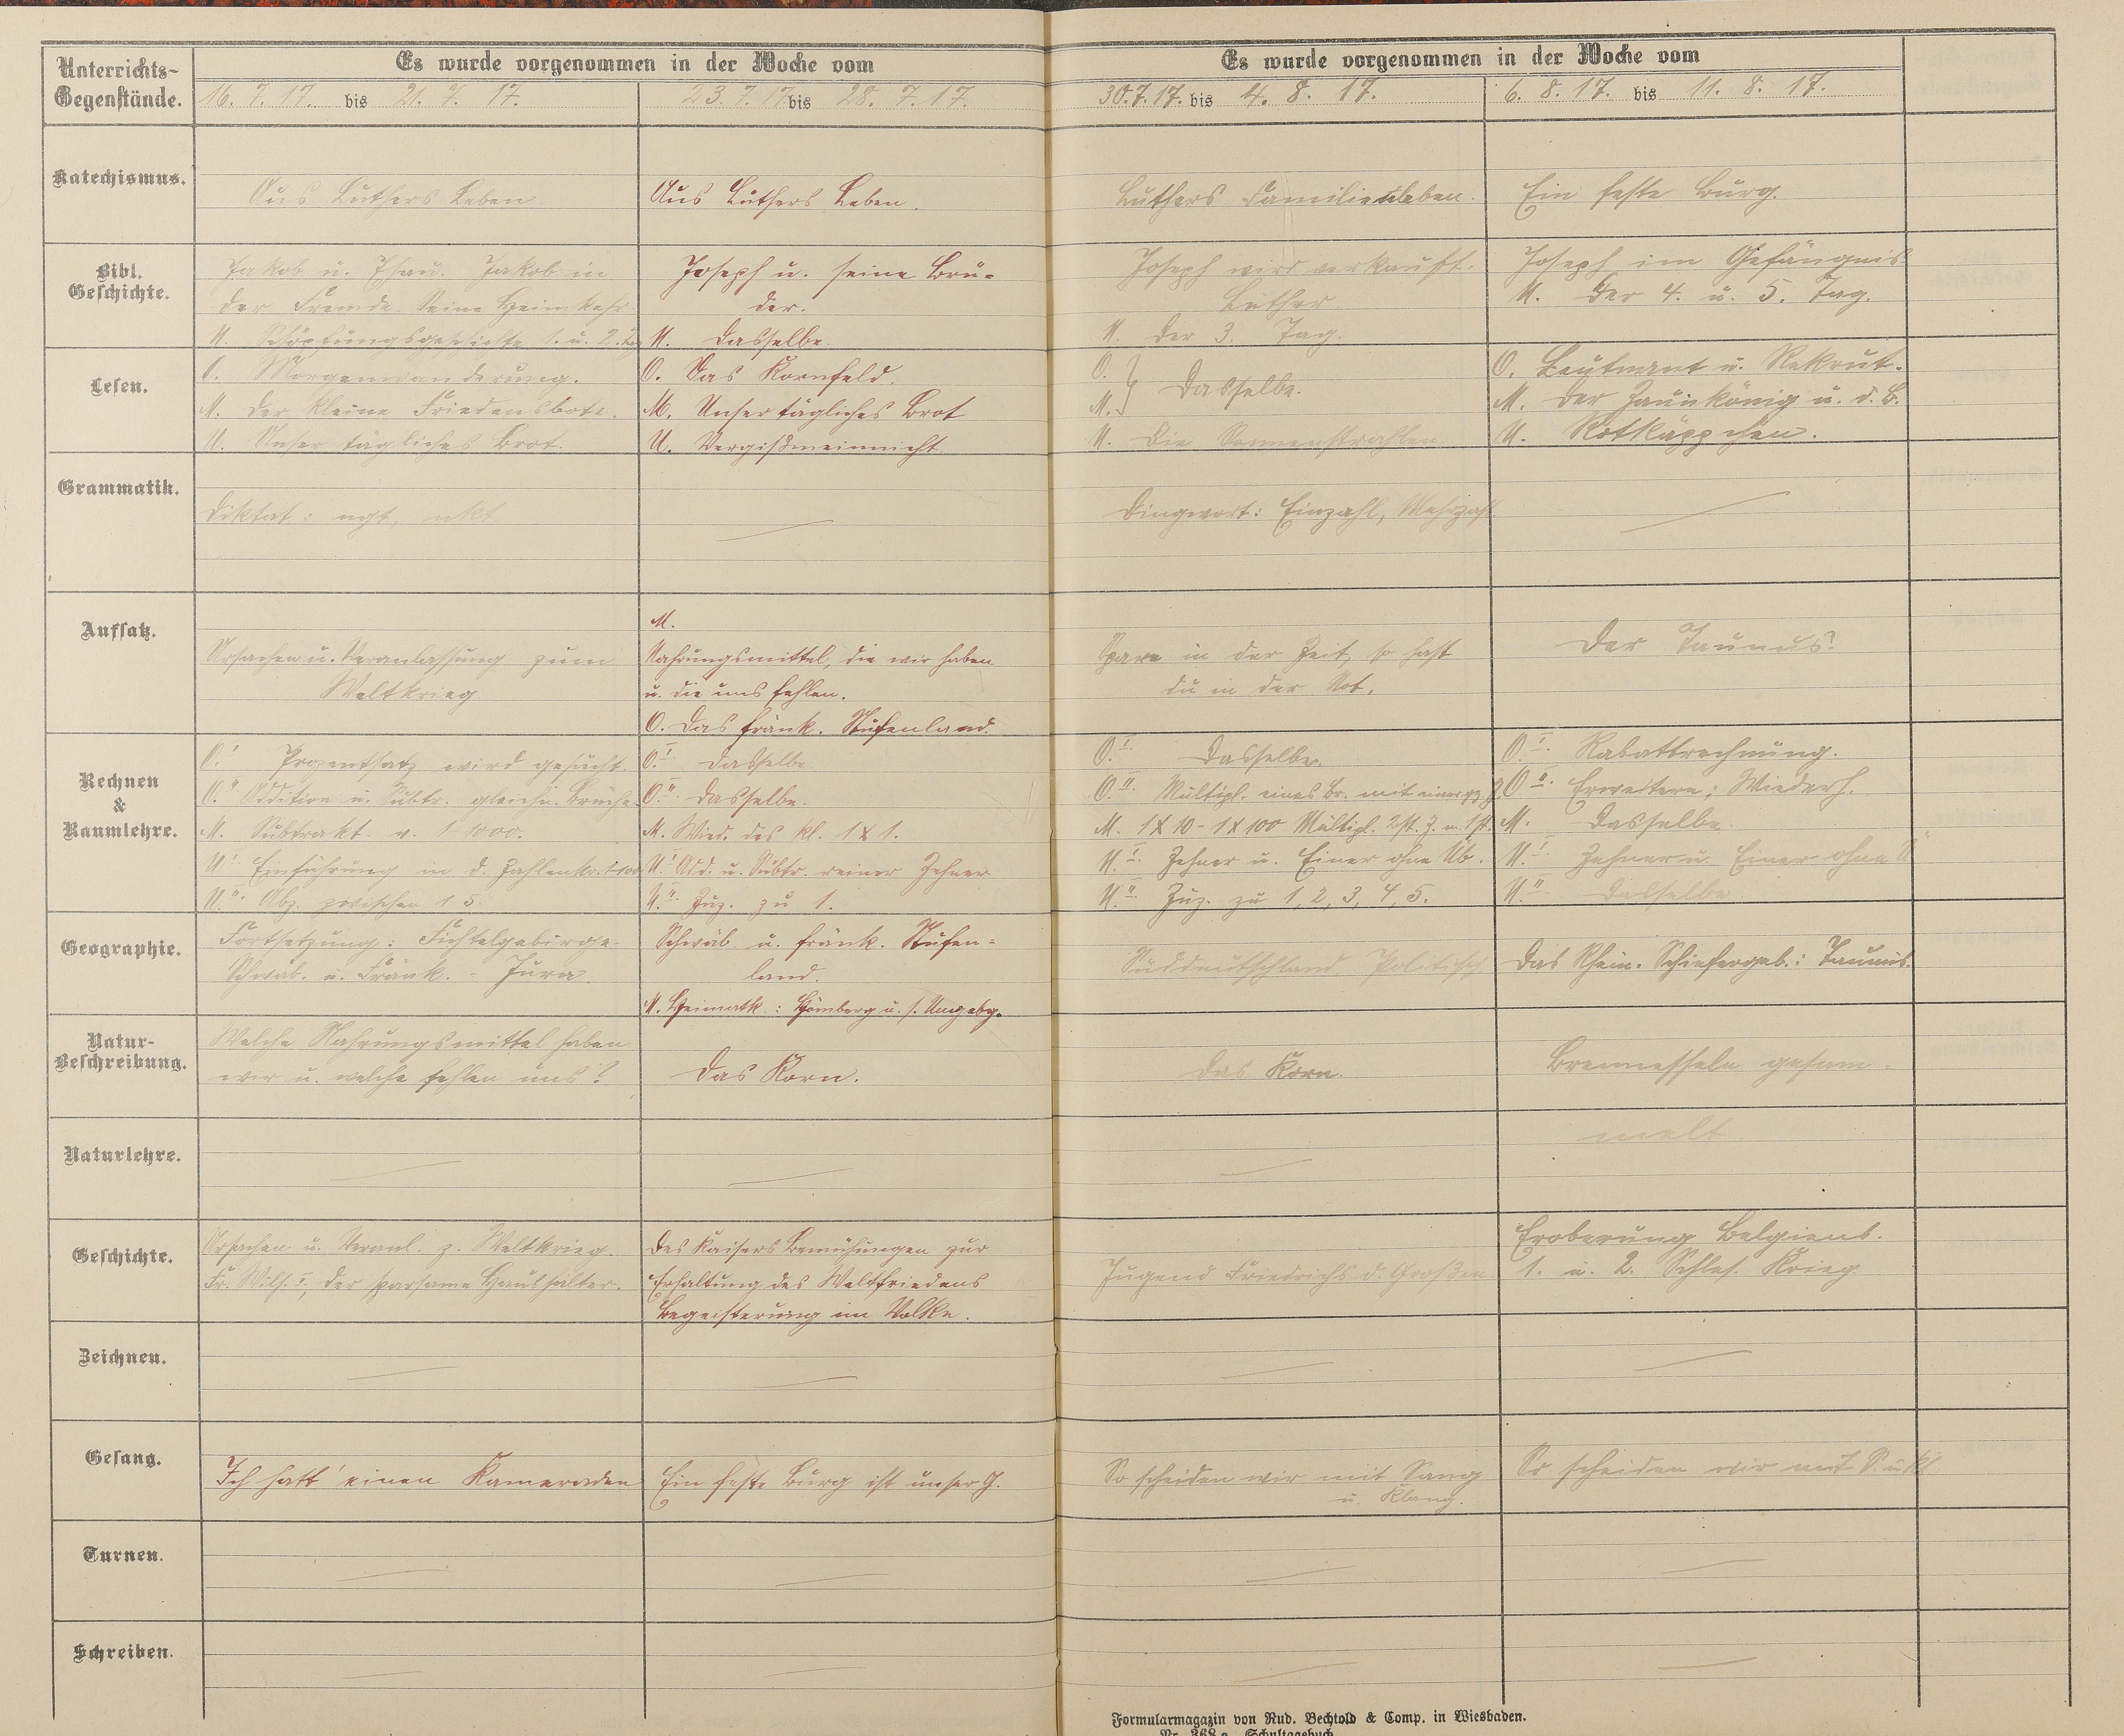 Unterrichts-
Gegenstände.
Es wurde vorgenommen in der Woche vom
16. 7. 17. bis 21. 7. 17.
23. 7. 17 bis 28. 7. 17.
Es wurde vorgenommen in der Woche vom
30. 7. 17. bis 4. 8. 17.
6. 8. 17. bis 11. 8. 17.
Katechismus.
Aus Luthers Leben
Aus Luthers Leben.
Luthers Familienleben.
Ein feste Burg.
Bibl.
Geschichte.
Jakob u. Esau. Jakob in
der Fremde. Seine Heimkehr
U. Schöpfungsgeschichte 1. u. 2. Tag
Joseph u. seine Brü-
der.
U. Dasselbe.
Joseph wird verkauft.
Luther.
U. Der 3. Tag.
Joseph im Gefängnis
U. Der 4. u. 5. Tag.
Lesen.
O. Morgenwanderung.
M. Der kleine Friedensbote.
U. Unser tägliches Brot.
O. Das Kornfeld.
M. Unser tägliches Brot
U. Vergißmeinnicht.
O.
M. } Dasselbe.
U. Die Sonnenstrahlen.
O. Leutnant u. Rekrut.
M. Der Zaunkönig u. d. B.
U. Rotkäppchen.
Grammatik.
Diktat: ngt, nkt
Dingwort: Einzahl, Mehrzahl.
Aufsatz.
Ursachen u. Veranlassung zum
Weltkrieg
M.
Nahrungsmittel, die wir haben
u. die uns fehlen.
O. Das fränk. Stufenland.
Spare in der Zeit, so hast
du in der Not.
Der Taunus.
Rechnen
&
Raumlehre.
O.I Prozentsatz wird gesucht.
O.II Addition u. Subtr. gleichn. Brüche.
M. Subtrakt. v. 1-1000.
U.I Einführung in d. Zahlenkr. 1-100
U.II Abz. zwischen 1-5.
O.I Dasselbe.
O.II Dasselbe.
M. Wied. des kl. 1x1.
U.I Add. u. Subtr. reiner Zehner
U.II Zuz. zu 1.
O.I Dasselbe.
O.II Multipl. eines Br. mit einer gz. Z.
M. 1x10 - 1x100 Multipl. 2st. Z. m. 1st.
U.I Zehner u. Einer ohne Üb.
U.II Zuz. zu 1, 2, 3, 4, 5.
O.I Rabattrechnung.
O.II Erweitern; Wiederh.
M. Dasselbe
U.I Zehner u. Einer ohne Ü
U.II Dasselbe
Geographie.
Fortsetzung: Fichtelgebirge.
Schwäb. u. Fränk. - Jura.
Schwäb. u. fränk. Stufen-
land.
U. Heimatk.: u. s. Umgebg.
Süddeutschland. Politisch
Das Rhein. Schiefergeb.: Taunus.
Natur-
Beschreibung.
Welche Nahrungsmittel haben
wir u. welche fehlen uns?
Das Korn.
Das Korn.
Brennesseln gesam-
melt
Naturlehre.
Geschichte.
Ursachen u. Veranl. z. Weltkrieg.
Fr. Wilh. I, der sparsame Haushälter.
Des Kaisers Bemühungen zur
Erhaltung des Weltfriedens
Begeisterung im Volke.
Jugend Friedrichs d. Großen.
Eroberung Belgiens.
1. u. 2. Schles. Krieg
Zeichnen.
Gesang.
Ich hatt' einen Kameraden
Ein feste Burg ist unser G.
So scheiden wir mit Sang
u. Klang.
So scheiden wir mit S. u. Kl
Turnen.
Schreiben.
Formularmagazin von Rud. Bechtold & Comp. in Wiesbaden.
Nr. 268 a. Schultagebuch